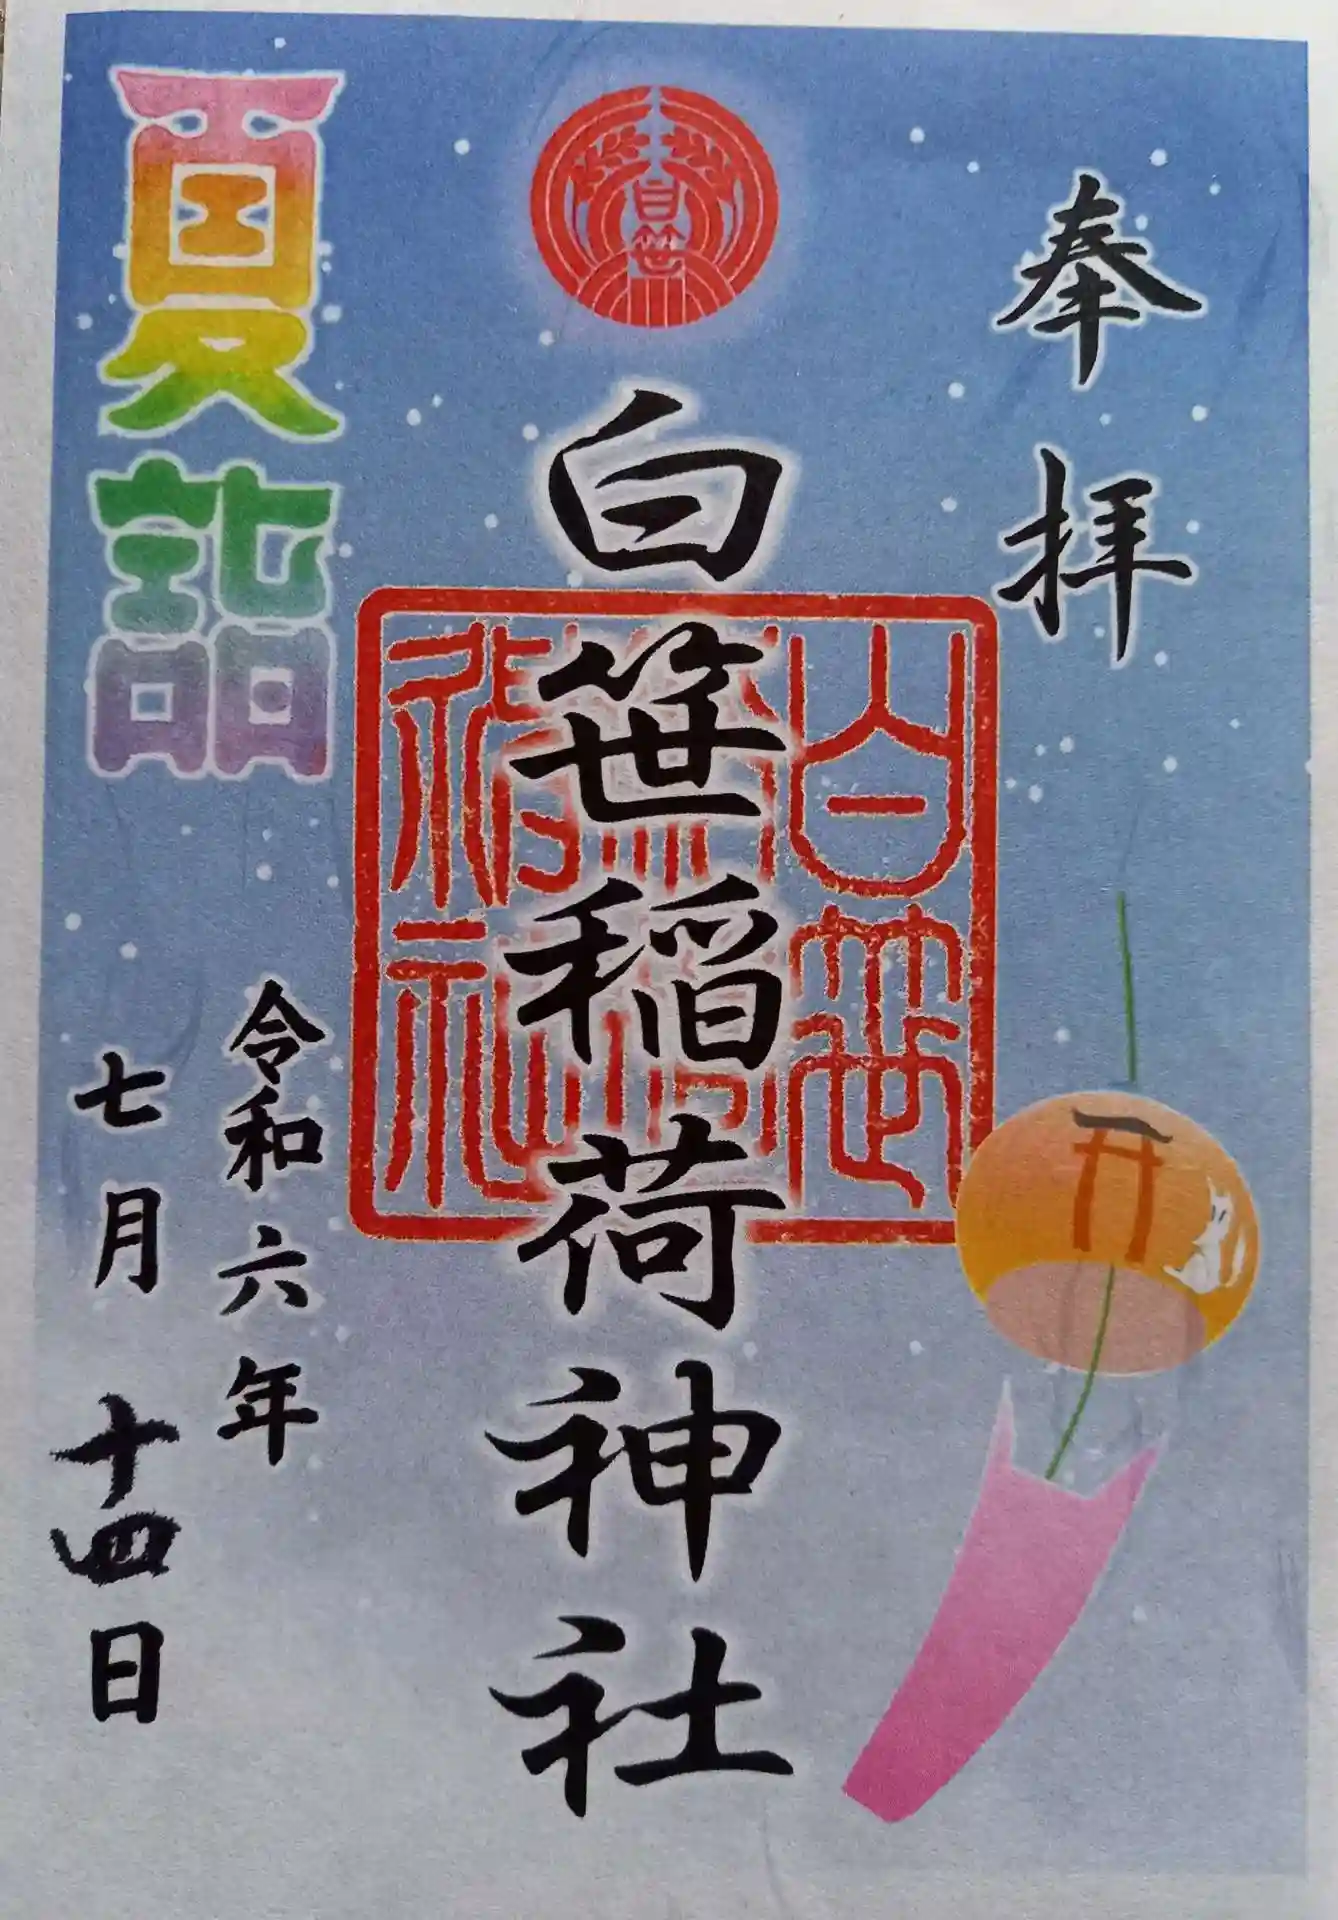 奉拝
白笹
白笹稲荷神社
白笹
神社
夏詣
令和六年
七月十四日